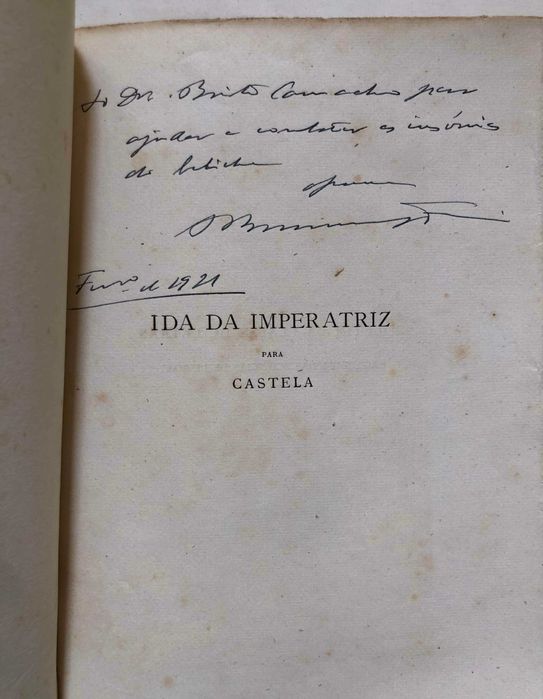 Ao Dr. Brito Camacho para
ajudar a combater as insónias
do beliche
Fevº de 1921
IDA DA IMPERATRIZ
PARA
CASTELA